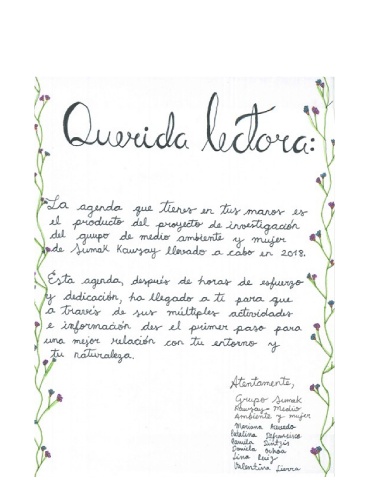 Querida lectora:
La agenda que tienes en tus manos es
el producto del proyecto de investigación
del grupo de medio ambiente y mujer
de Sumak Kawsay llevado a cabo en 2018.
Esta agenda, después de horas de esfuerzo
y dedicación, ha llegado a ti para que
a través de sus múltiples actividades
e información des el primer paso para
una mejor relación con tu entorno y
tu naturaleza.
Atentamente,
Grupo Sumak
Kawsay - Medio
Ambiente y mujer
Mariana Acevedo
Catalina Defrancisco
Camila
Daniela Ochoa
Lina Ruiz
Valentina Sierra